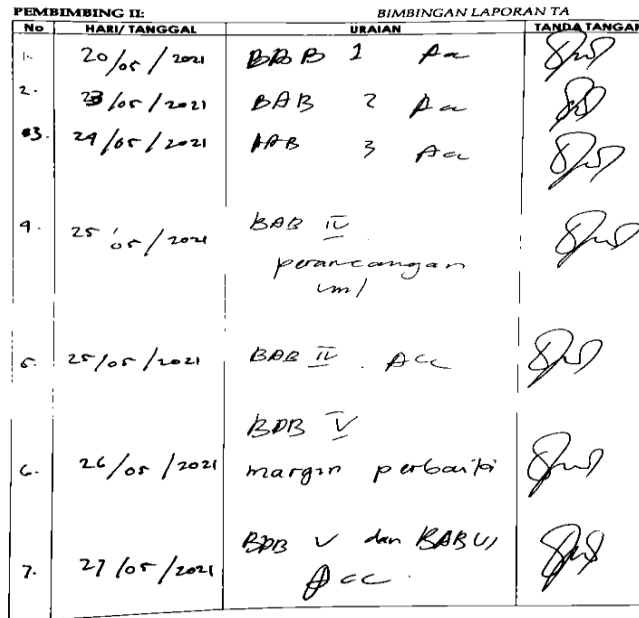 PEMBIMBING II: BIMBINGAN LAPORAN TA
No HARI/ TANGGAL URAIAN TANDA TANGAN
1. 20/05/2021 BAB 1 Acc
2. 23/05/2021 BAB 2 Acc
3. 24/05/2021 BAB 3 Acc
4. 25/05/2021 BAB IV
perancangan
uml
5. 25/05/2021 BAB IV. Acc
BAB V
6. 26/05/2021 margin perbaiki
BAB V dan BAB VI
7. 27/05/2021 Acc.